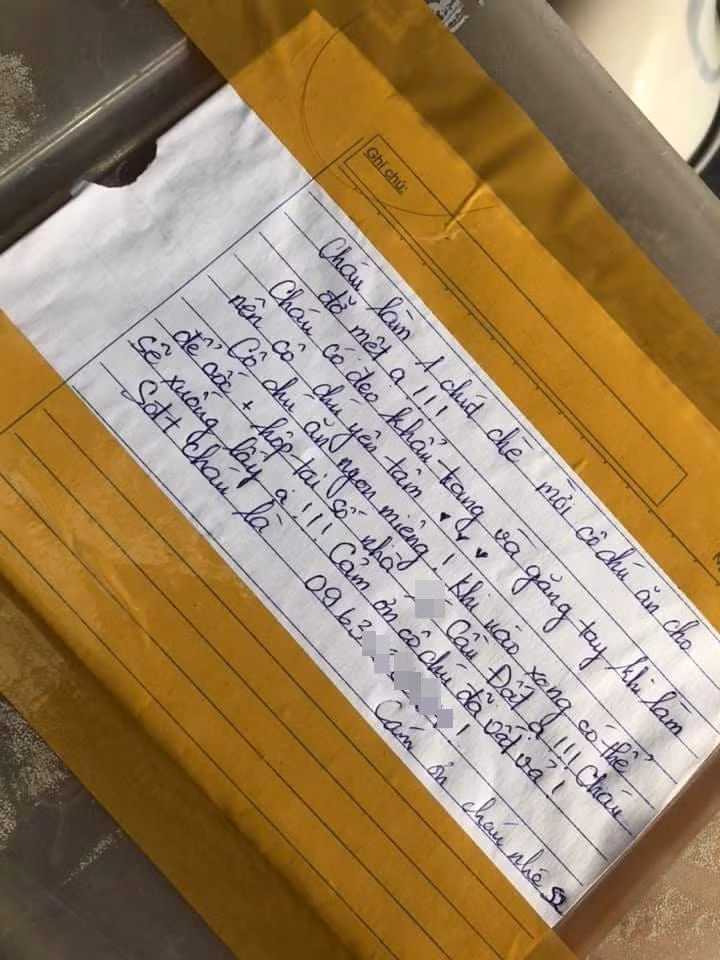 Ghi chú:
Cháu làm 1 chút chè mời cô chú ăn cho
đỡ mệt ạ !!!
Cháu có đeo khẩu trang và găng tay khi làm
nên cô chú yên tâm ♥ ♥ ♥
Cô chú ăn ngon miệng ! Khi nào xong có thể
để cốc + hộp tại số nhà Cầu Đất ạ !!! Cháu
sẽ xuống lấy ạ !!! Cảm ơn cô chú đã vất vả !
Sđt cháu là 0963 !
Cảm ơn cháu nhé